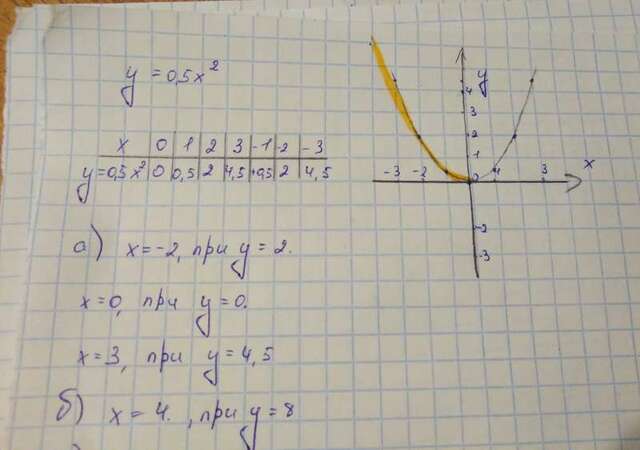 y = 0,5x²
x 0 1 2 3 -1 -2 -3
y=0,5x² 0 0,5 2 4,5 +0,5 2 4,5
а) x=-2, при y=2.
x=0, при y=0.
x=3, при y=4,5
б) x=4. , при y=8
y
4
3
2
1
x
-3 -2 0 1 3
-2
-3